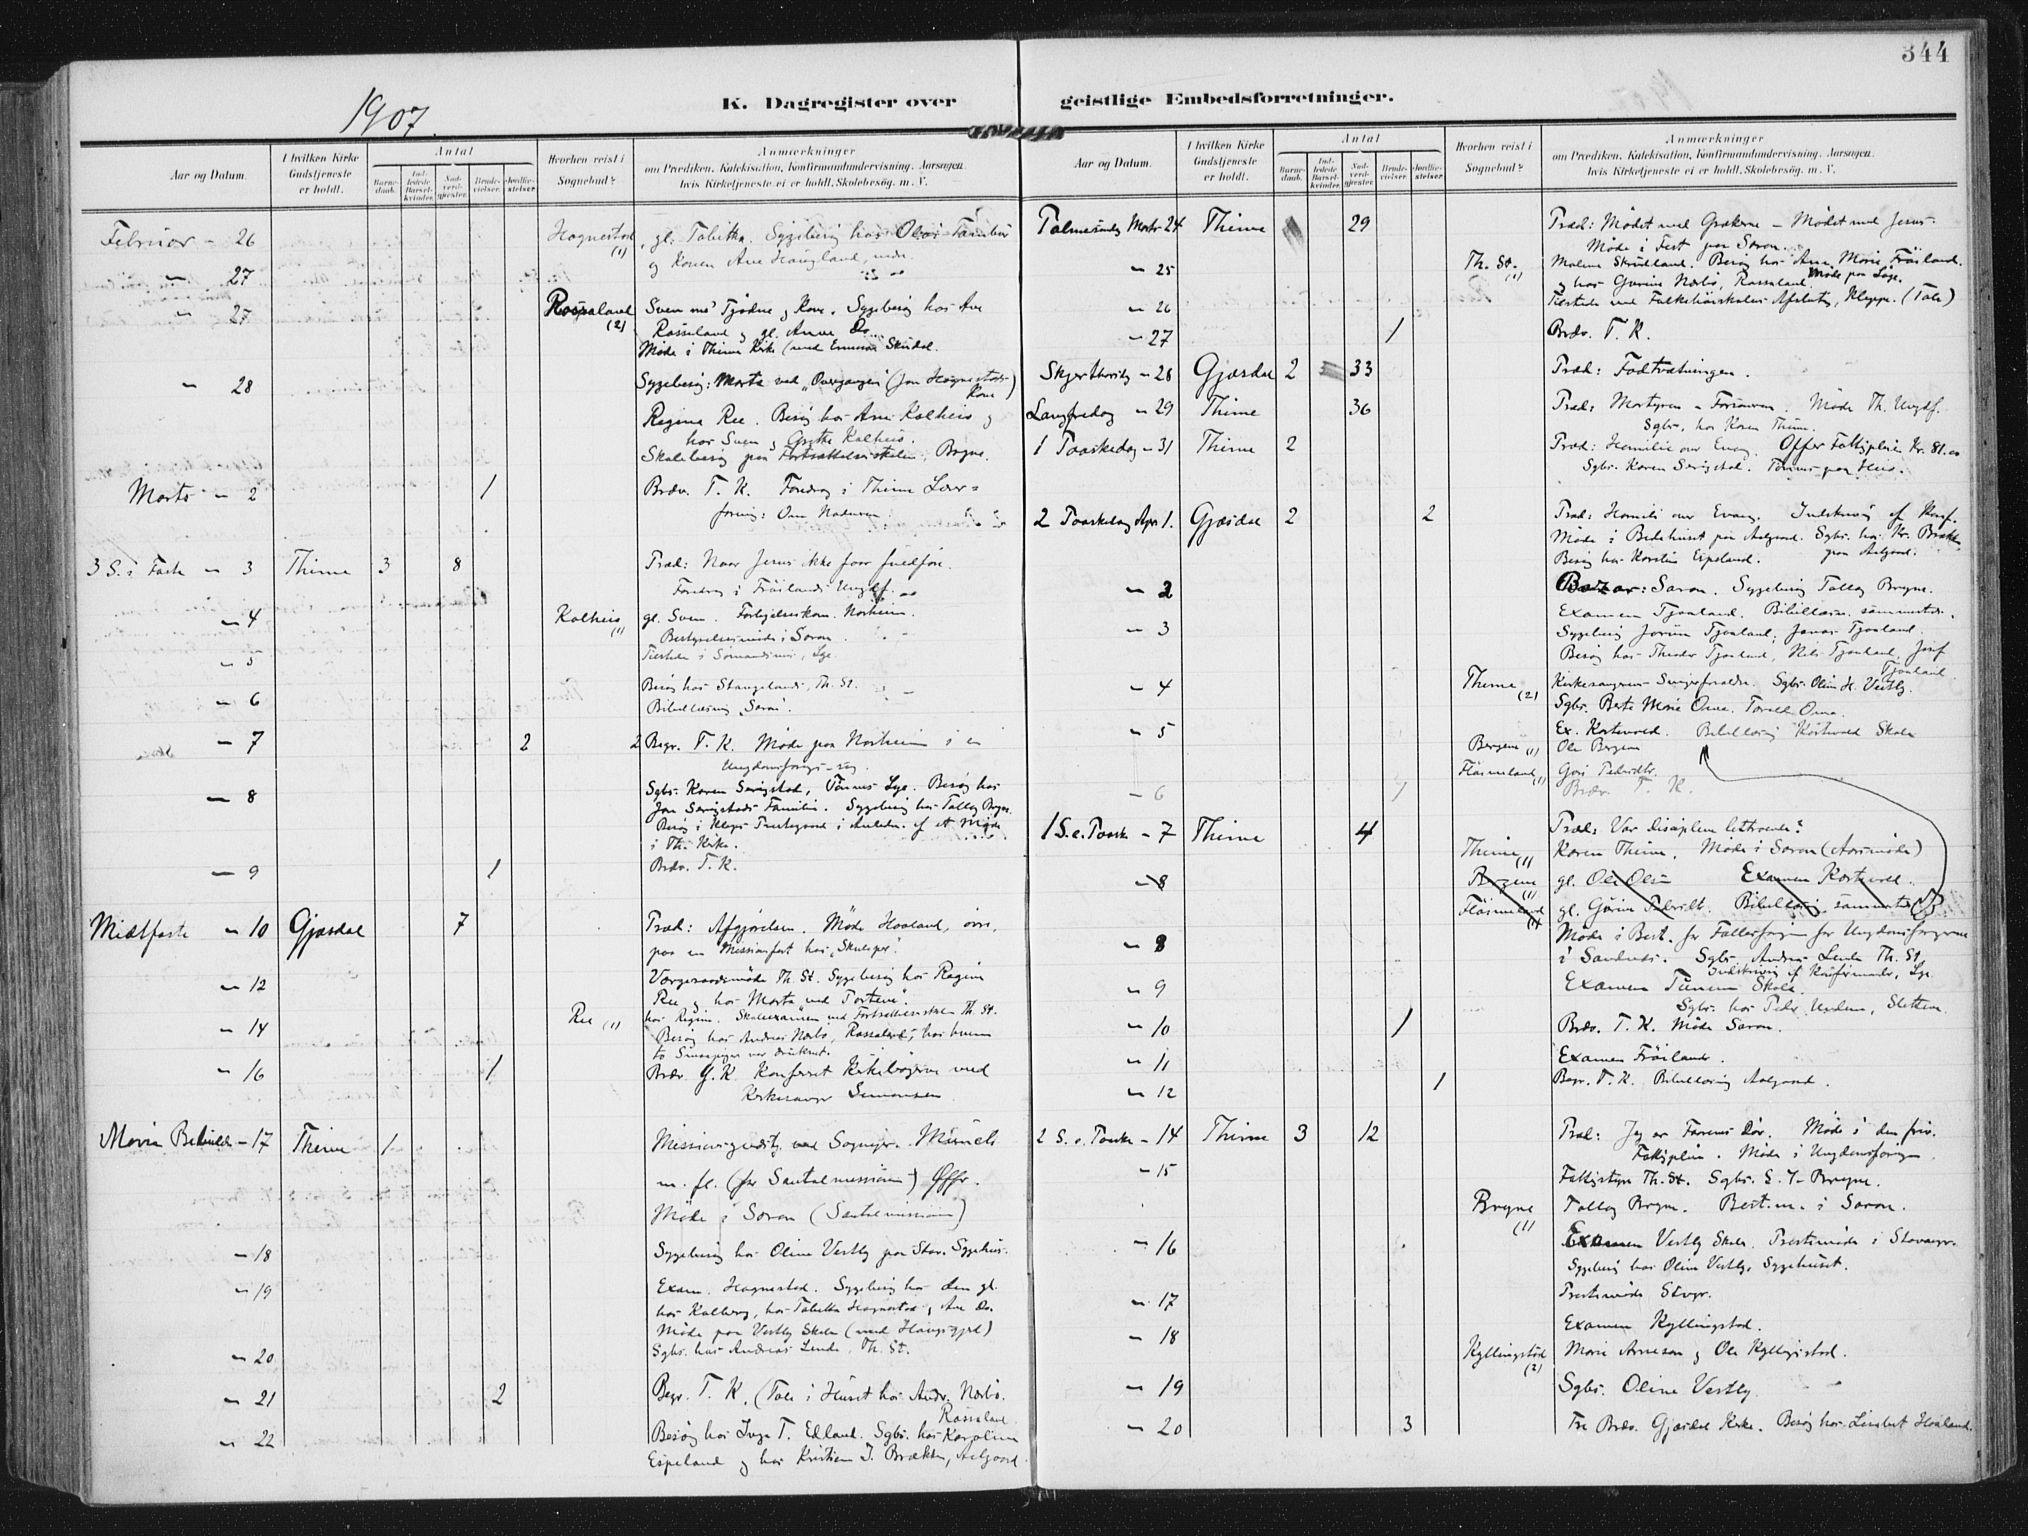 344
1907.
K. Dagregister over geistlige Embedsforretninger.
Aar og Datum.
I hvilken Kirke Gudstjeneste er holdt.
Antal
Barnedaab.
Indledede Barselkvinder.
Nadverdgjester.
Brudevielser.
Jordfæstelser.
Hvorhen reist i Sognebud?
Anmærkninger
om Prædiken, Katekisation, Konfirmandundervisning, Aarsagen hvis Kirketjeneste ei er holdt, Skolebesøg, m. V.
Februar - 26 Hognestad (1) gl. Tabitha. Sygebesøg hos
og Konen Ane Haugland,
" 27
" 27 Rossaland (2) Sven og Kone. Sygebesøg hos Ane
Rosseland og gl. Anne Do.
Møde i Thime Kirke (med Skirdal.
" 28 Sygebesøg: Marta ved "Overgangen" (Jon Hognestads Kone)
Regine Ree. Besøg hos Ane Kalheis og
hos Sven og Grethe Kalheis.
Skolebesøg paa Fortsættelsesskolen, Bryne.
Marts - 2 1 Brdv. T. K. Foredrag i Thime
forening: Om Naduren
3 S. i Faste - 3 Thime 3 8 Præd: Naar Jesus ikke faar
Foredrag i Frøilands Ungdf.
- 4 Kalheis (1) gl. Sven. Forligelseskom. Norheim.
Bestyrelsesmøde i Saron.
- 5 Tilstede i
- 6 Besøg hos Stangelands, Th. St.
Bibellæsning "Saron".
- 7 2 2 Begr. T. K. Møde paa Norheim i en
Ungdomsforenings-sag.
- 8 Sgbs. Karen Serigstad, Tønnes Lye. Besøg hos
Jon Serigstads Familie. Sygebesøg hos Tallag Bryne.
Besøg i Klepp Prestegaard i Anledn. af et Møde
i Th. Kirke.
- 9 1 Brdv. T. K.
Midtfaste - 10 Gjæsdal 7 Præd: Afgjørelsen. Møde Haaland, øvre,
paa en Missionsfest hos
- 12 Værgeraadsmøde Th. St. Sygebesøg hos Regine
Ree og hos Marta ved "Porten".
- 14 Ree (1) hos Regine. Skoleexamen ved Fortsættelsesskolen Th. St.
Besøg hos Andreas Nærbø, Rossaland, hos hvem
to Smaapiger var druknet.
- 16 1 Brdv. G. K. Konferert Kirkebøgerne med
Kirkesanger Simonsen.
Maria Bebudelse - 17 Thime 1 Missionsgudstj. ved Sognepr.
m. fl. (for Santalmissionen) Offr.
Møde i Saron (Santalmissionen)
- 18 Sygebesøg hos Oline Vestly paa Stav. Sygehus.
- 19 Exam. Hognestad. Sygebesøg hos den gl.
hos Kalberg, hos Tabitha Hognestad og Ane Do.
Møde paa Vestly Skole (med Haugsgjerd)
- 20 Sgbs. hos Andreas Lende, Th. St.
- 21 2 Begr. T. K. (Tale i Huset hos Andr. Nærbø.
Rossaland.
- 22 Besøg hos Inga T. Edland. Sgbs. hos Karoline
Espeland og hos Kristian I. Brækken, Aalgaard.
Aar og Datum.
I hvilken Kirke Gudstjeneste er holdt.
Antal
Barnedaab.
Indledede Barselkvinder.
Nadverdgjester.
Brudevielser.
Jordfæstelser.
Hvorhen reist i Sognebud?
Anmærkninger
om Prædiken, Katekisation, Konfirmandundervisning, Aarsagen hvis Kirketjeneste ei er holdt, Skolebesøg, m. V.
Palmesøndg Marts 24 Thime 29 Præd: Mødet med Grækerne - Mødet med Jesus.
Møde i Fest paa Saron.
- 25 Th. St. (1) Malene Skrudland. Besøg hos Ane Marie Frøiland.
og hos Gurine Nærbø, Rossaland. Møde paa Lye.
- 26 Tilstede ved Folkehøiskolens Afslutng, Kleppe. (Tale)
- 27 1 Brdv. T. K.
Skjærthorsdg - 28 Gjæsdal 2 33 Præd: Fodtvætningen.
Langfredag - 29 Thime 36 Præd: Martyren - Forsoneren. Møde Th. Ungdf.
Sgbs. hos Karen Thime.
1 Paaskedag - 31 Thime 2 Præd: Homilie over Evang. Offer Fattigpleien Kr. 81.00
Sgbs. Karen Serigstad. Tønnes paa Heia.
2 Paaskedag Apr. 1. Gjæsdal 2 2 Præd: Homili over Evang. Indskrivng af Konf.
Møde i Bedehuset paa Aalgaard. Sgbs. hos Kr. Brækken
Besøg hos Karoline Espeland. paa Aalgaard.
- 2 Bazar: Saron. Sygebesøg Tallag Bryne.
- 3 Examen Tjaaland. Bibellæsn. sammesteds.
Sygebesøg Jorun Tjaaland; Jonas Tjaaland.
Besøg hos Theodor Tjaaland, Nils Tjaaland, Josef
Tjaaland.
- 4 Thime (2) Kirkesangerens Svigerforældre. Sgbs. Oline H. Vestly.
Sgbs. Berte Marie Oma. Torvald Oma.
- 5 Ex. Kartevold. Bibellæsng Kartevold Skole
Bergene (1) Ole Bergene
Flassneland (1) Guri Pedersdtr.
- 6 1 Brdv. T. K.
1 S. e. Paaske - 7 Thime 4 Præd: Var disciplene lettroende?
Thime (1) Karen Thime. Møde i Saron (Aarsmøde)
- 8 Bergene (1) gl. Ole Olsen Examen Kartevold.
Flassneland (1) gl. Bibellæsng sammesteds
- 8 Møde i Best. for Fællesforeningen for Ungdomsforeningerne
i Sandnes. Sgbs. Andreas Lende Th. St.
Indskrivng af Konfirmander, Lye.
- 9 Examen Tunem Skole.
Sgbs. hos Peder Undem, Sletten.
- 10 1 Brdv. T. K. Møde Saron.
- 11 Examen Frøiland.
- 12 1 Begr. T. K. Bibellæsng Aalgaard.
2 S. e. Paaske - 14 Thime 3 12 Præd: Jeg er Faarenes Dør. Møde i den friv.
Fattigpleie. Møde i Ungdomsforenigen.
- 15 Fattigstyre Th. St. Sgbs. E. T. Bryne.
Bryne (1) Tallag Bryne. Best. m. i Saron.
- 16 Examen Vestly Skole. Prestemøde i Stavangr.
Sygebesøg hos Oline Vestly, Sygehuset.
- 17 Prestemøde Stvgr.
- 18 Examen Kyllingstad.
Kyllingstad (2) Marie Arneson og Ole Kyllingstad.
- 19 Sgbs. Oline Vestly.
- 20 3 Tre Brdv. Gjæsdal Kirke. Besøg hos Haaland.